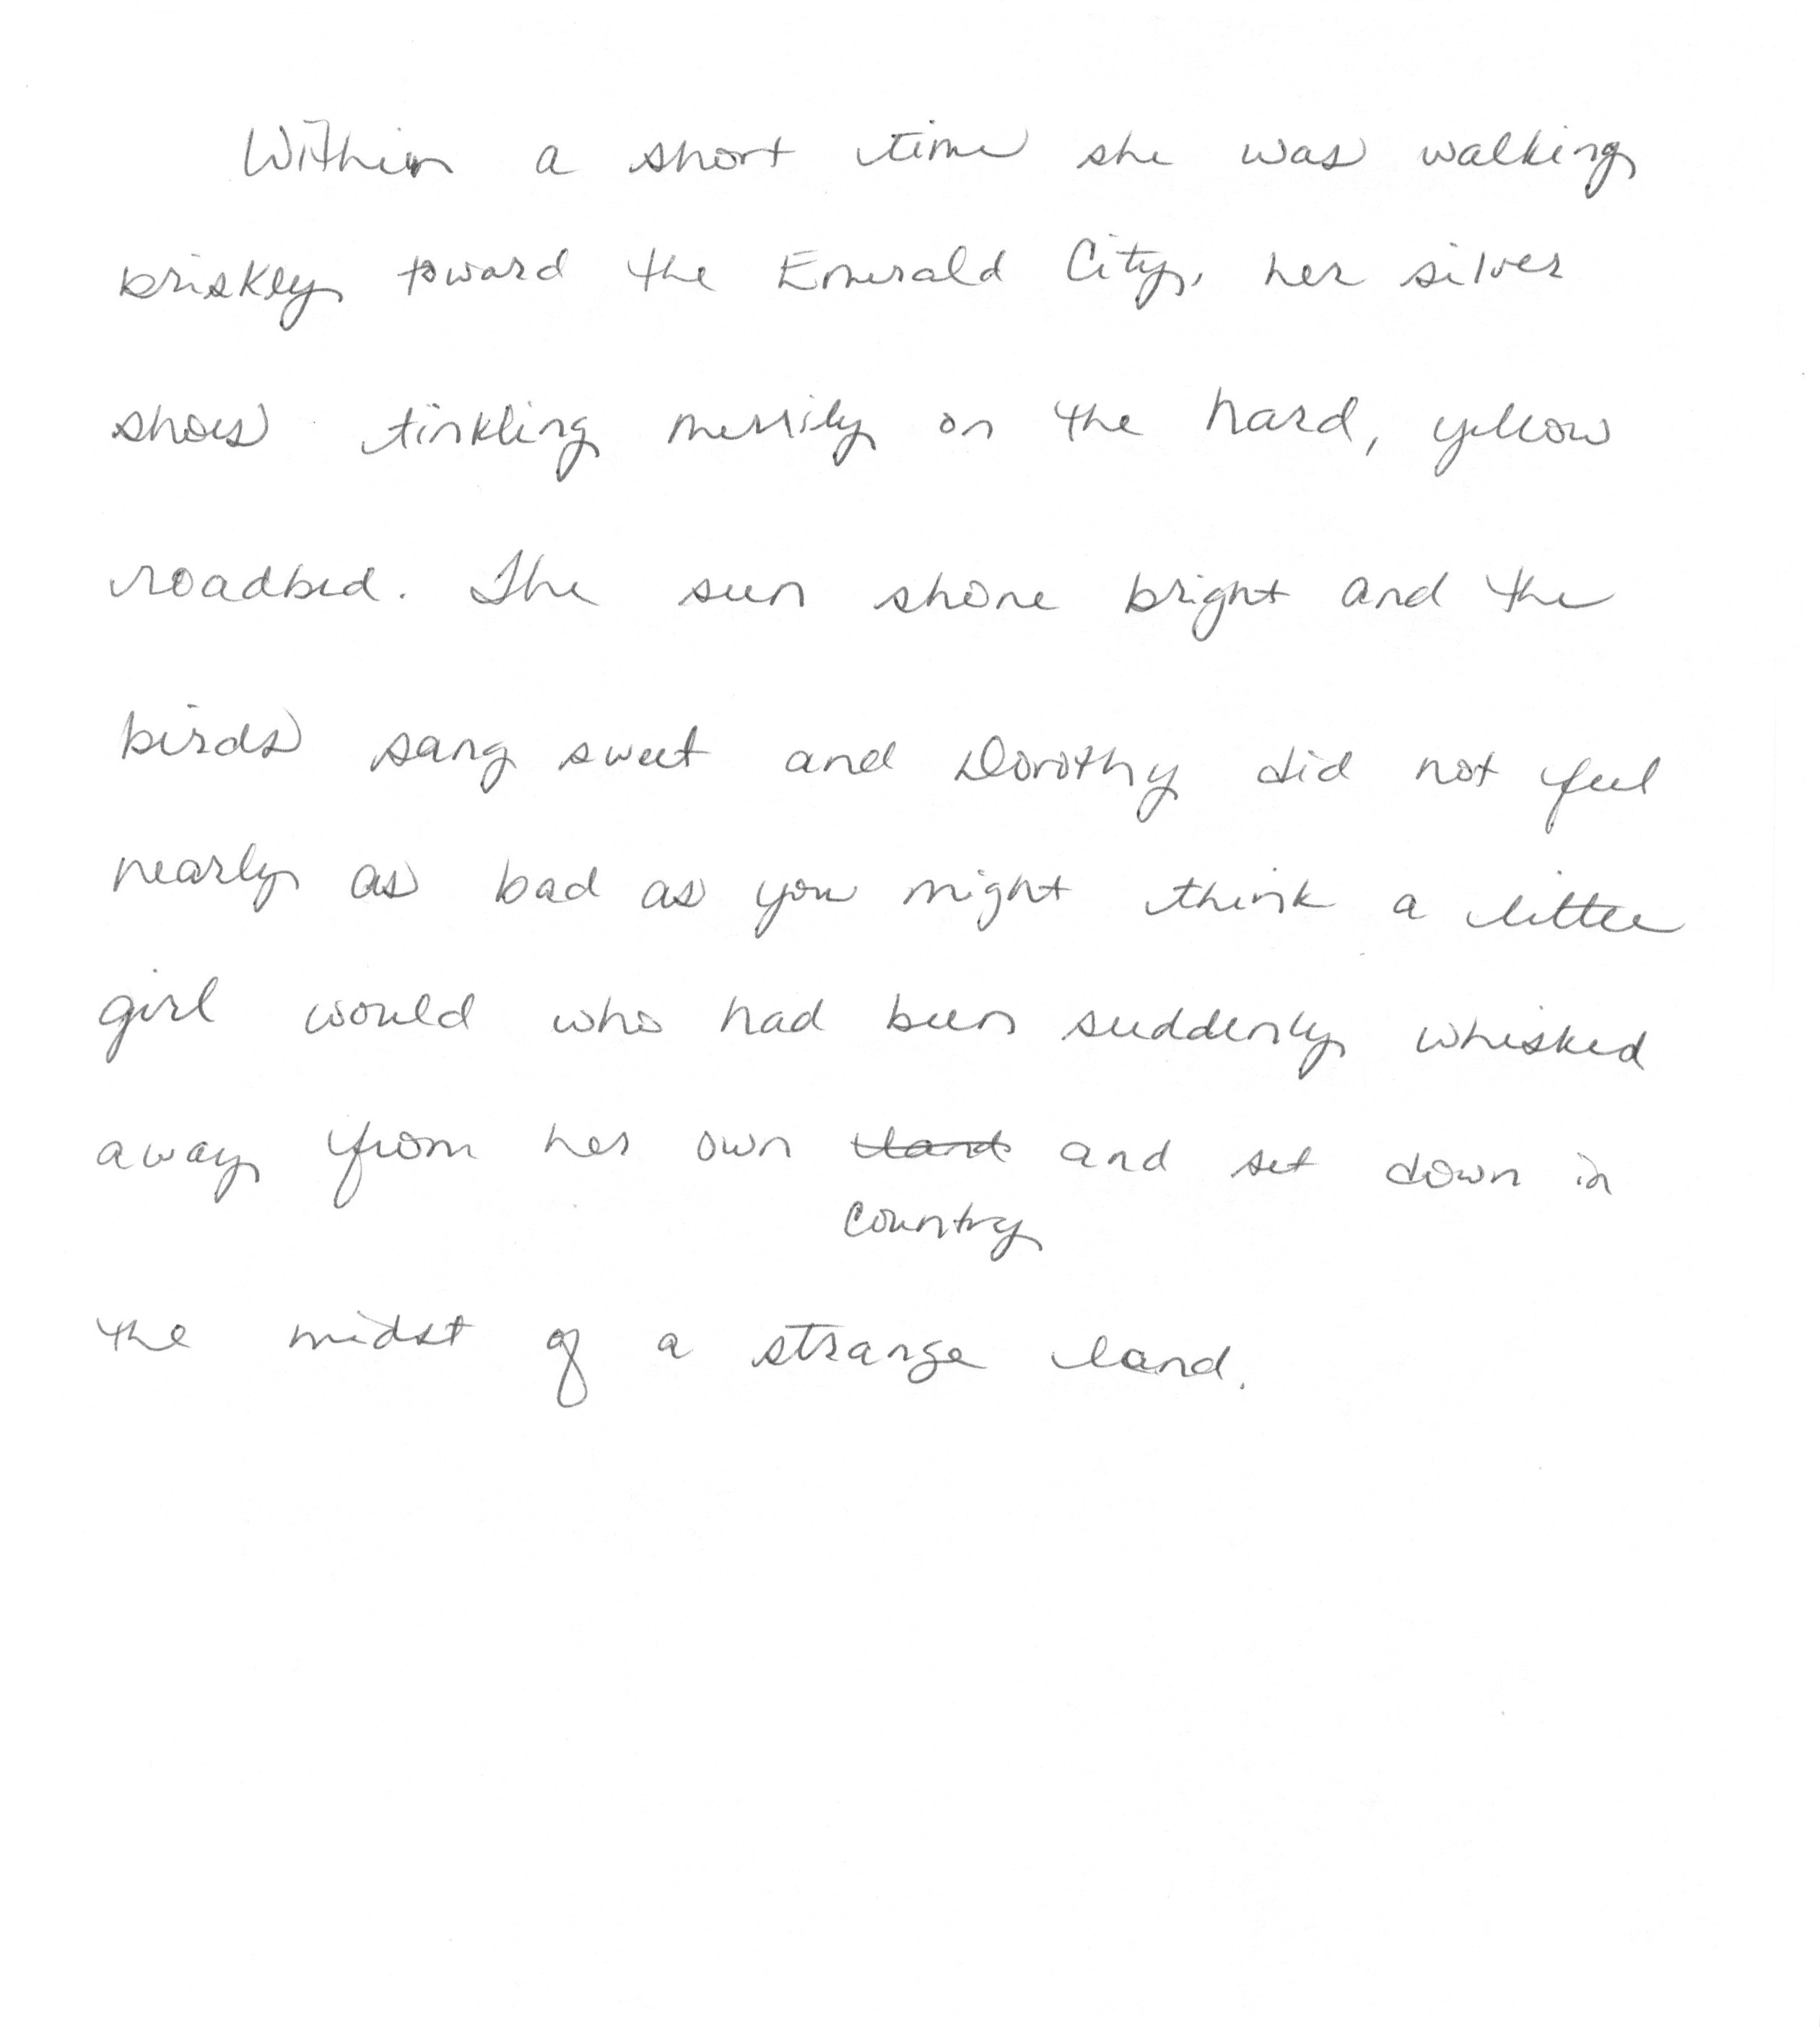 Within a short time she was walking
briskly toward the Emerald City, her silver
shoes tinkling merrily on the hard, yellow
roadbed. The sun shone bright and the
birds sang sweet and Dorothy did not feel
nearly as bad as you might think a little
girl would who had been suddenly whisked
away from her own land and set down in
country
the midst of a strange land.